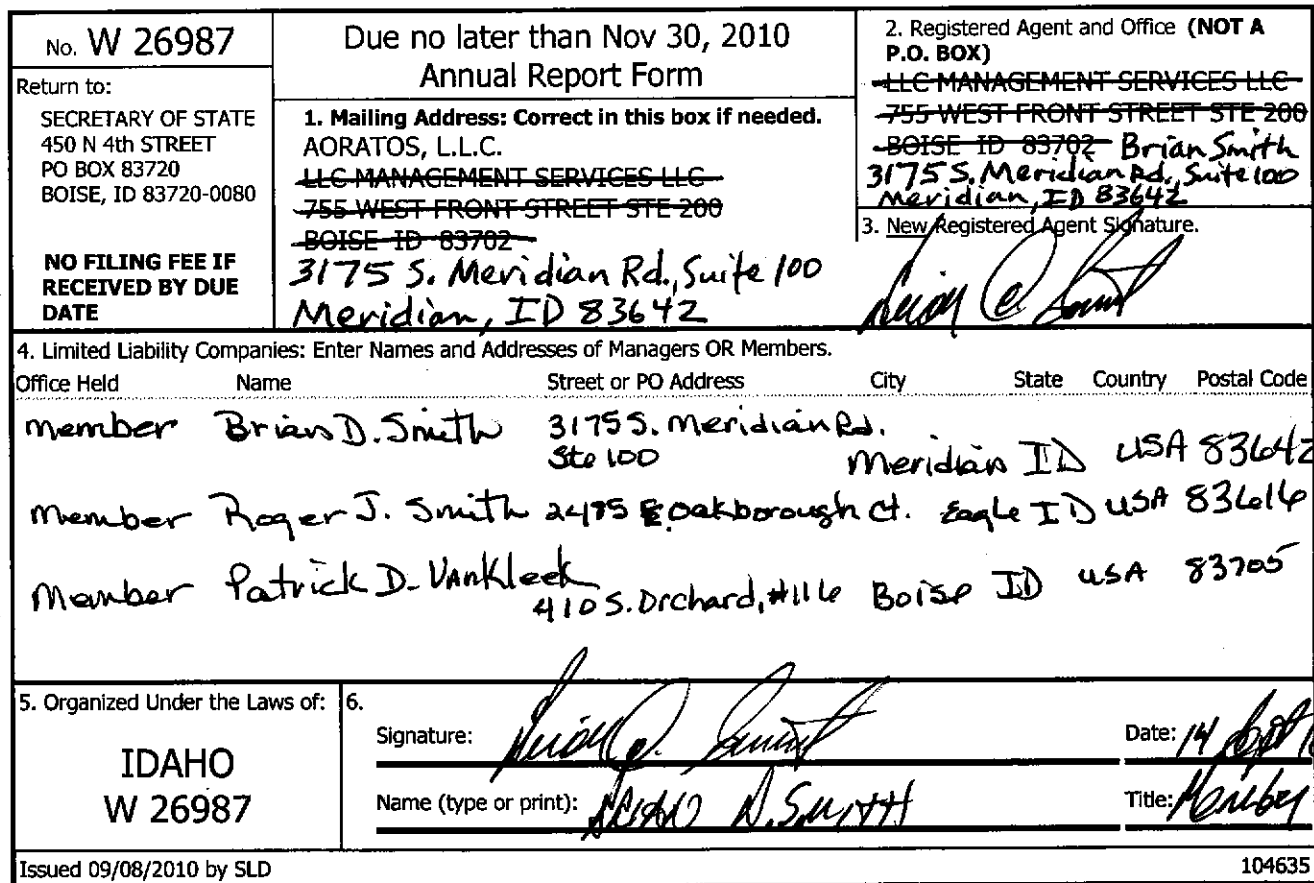 No. W 26987
Return to:
SECRETARY OF STATE
450 N 4th STREET
PO BOX 83720
BOISE, ID 83720-0080
NO FILING FEE IF
RECEIVED BY DUE
DATE
Due no later than Nov 30, 2010
Annual Report Form
1. Mailing Address: Correct in this box if needed.
AORATOS, L.L.C.
LLC MANAGEMENT SERVICES LLC
755 WEST FRONT STREET STE 200
BOISE ID 83702
3175 S. Meridian Rd., Suite 100
Meridian, ID 83642
2. Registered Agent and Office (NOT A
P.O. BOX)
LLC MANAGEMENT SERVICES LLC
755 WEST FRONT STREET STE 200
BOISE ID 83702 Brian Smith
3175 S. Meridian Rd., Suite 100
Meridian, ID 83642
3. New Registered Agent Signature.
4. Limited Liability Companies: Enter Names and Addresses of Managers OR Members.
Office Held Name Street or PO Address City State Country Postal Code
member Brian D. Smith 3175 S. Meridian Rd.
Ste 100 Meridian ID USA 83642
Member Roger J. Smith E. Oakborough Ct. Eagle ID USA 83616
Member Patrick D. VanKleek
410 S. Orchard, #116 Boise ID USA 83705
5. Organized Under the Laws of:
IDAHO
W 26987
6.
Signature:
Date: 14 Sept
Name (type or print): BRIAN D. SMITH
Title: Member
Issued 09/08/2010 by SLD
104635